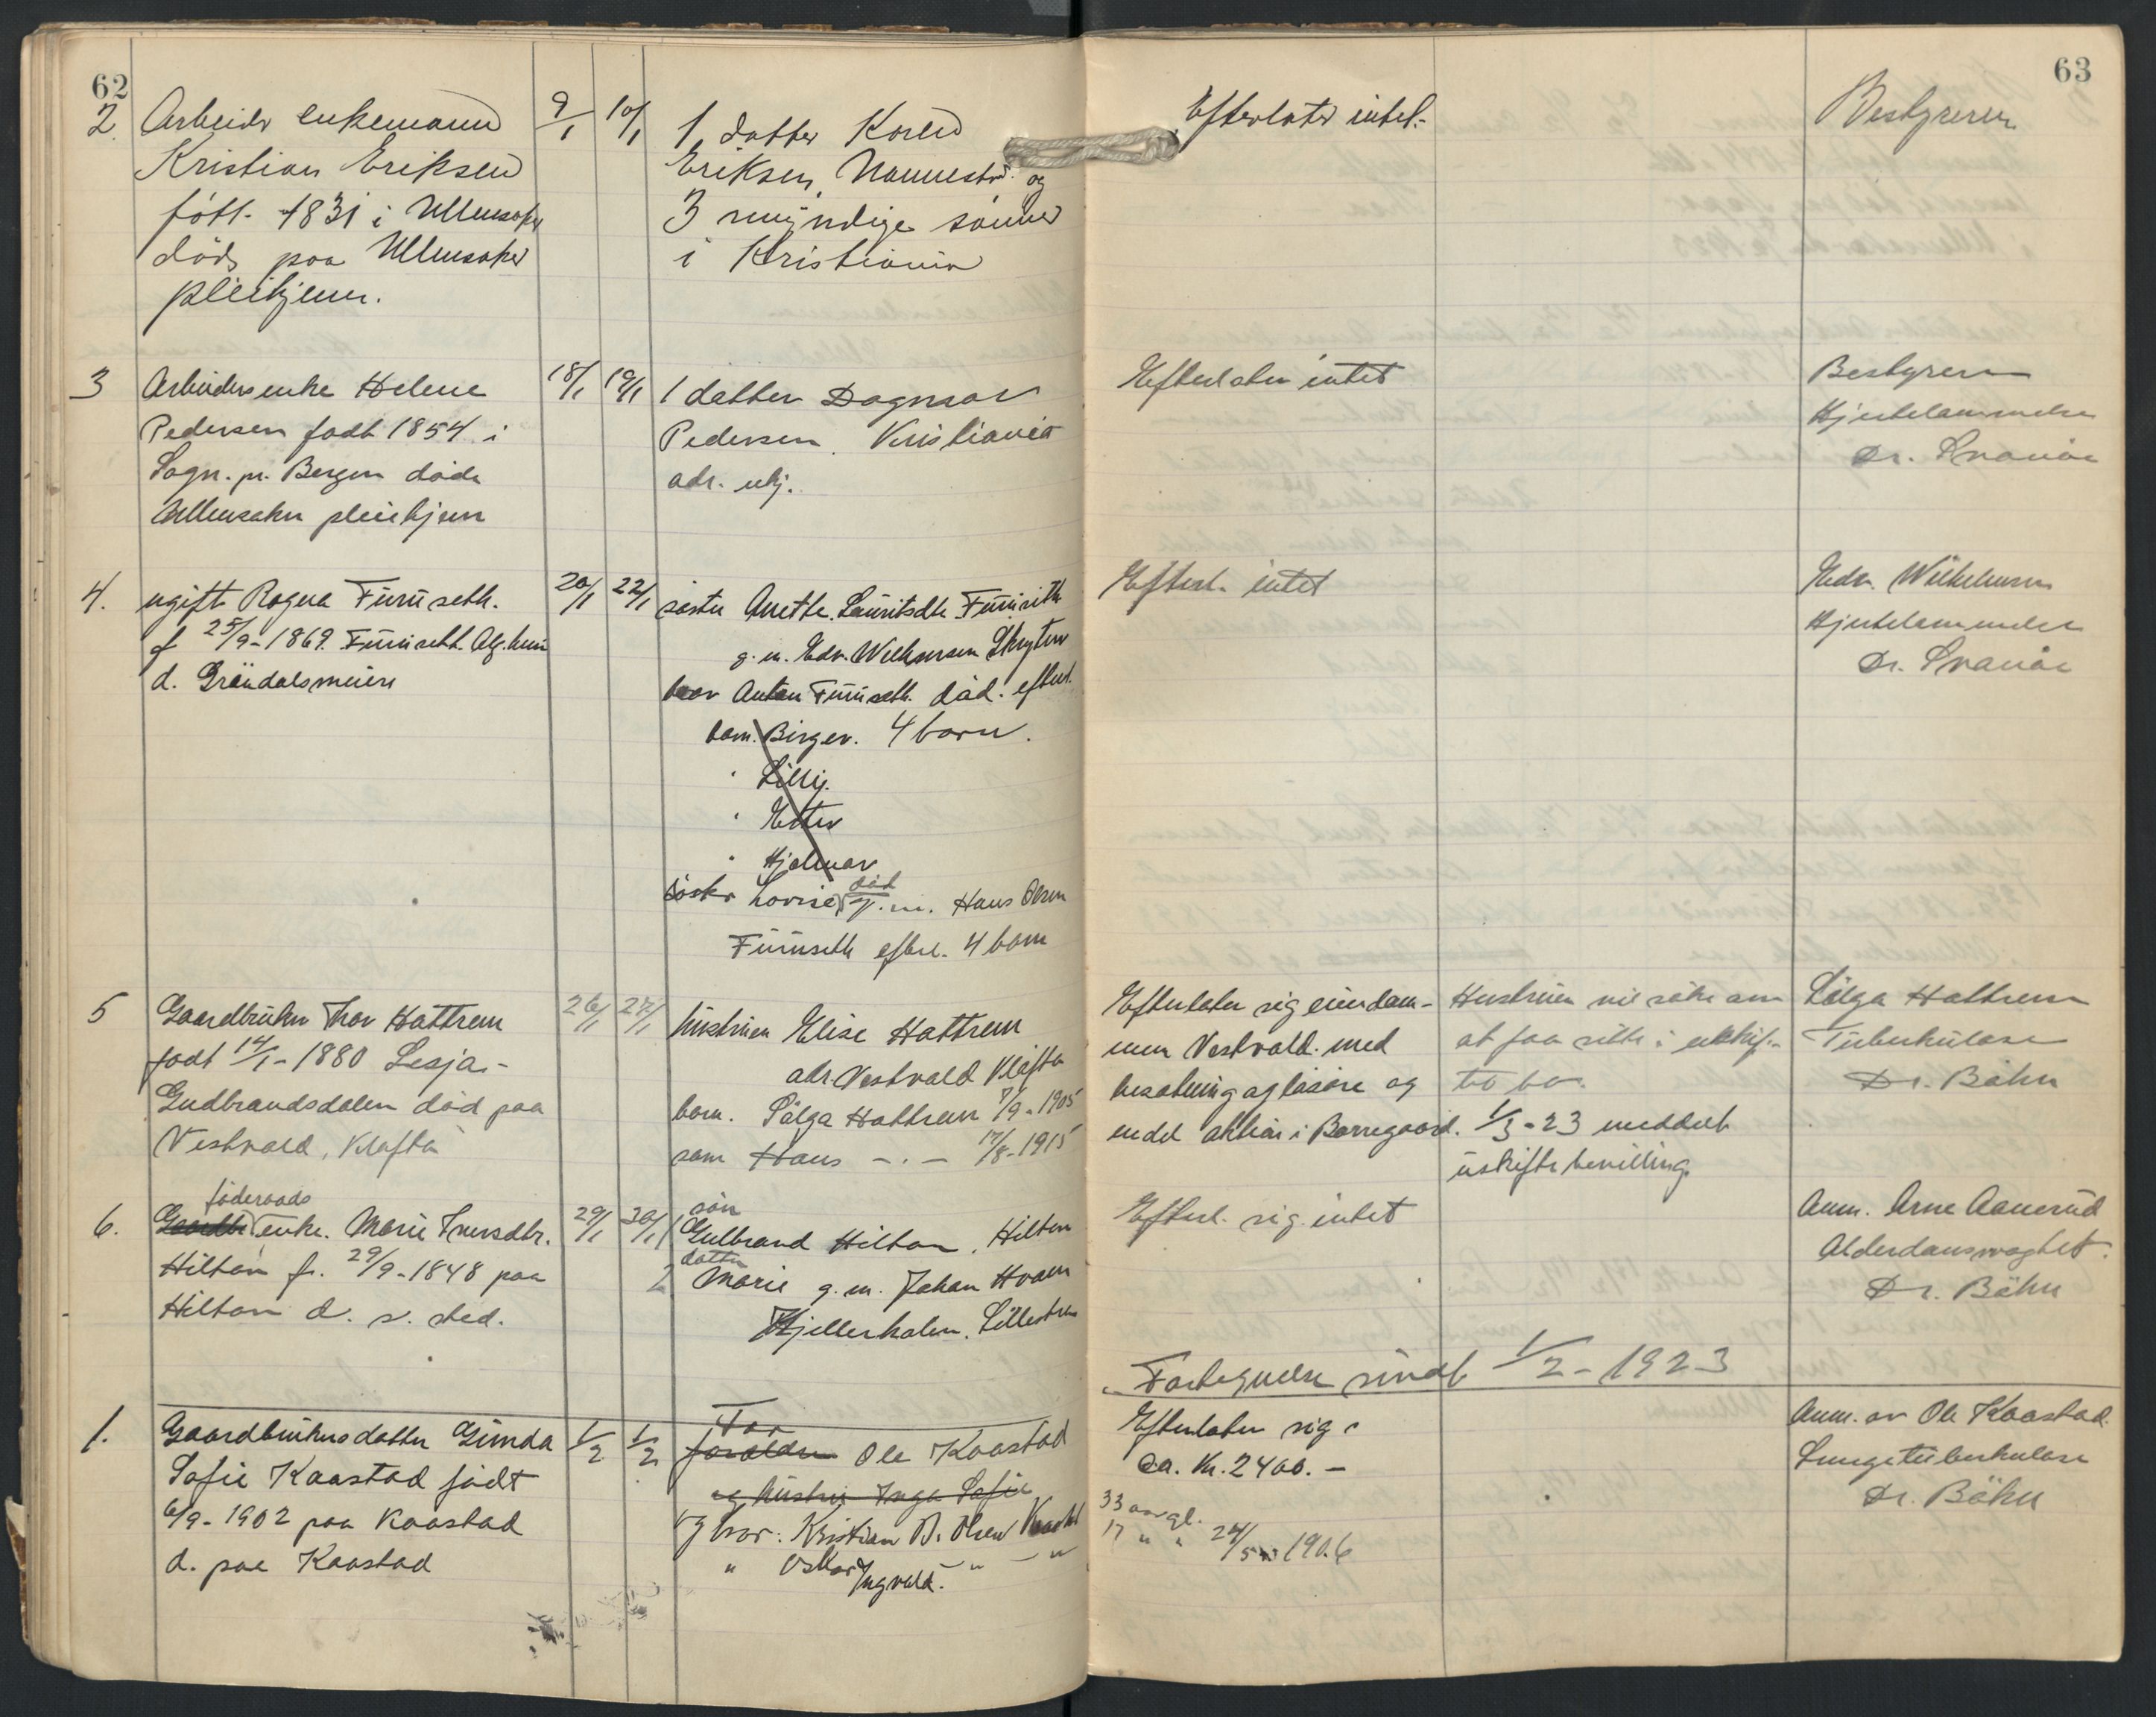 62
2. Arbeider enkemann
Kristian Eriksen
født 1831 i Ullensaker
død paa Ullensaker
pleiehjem.
9/1 10/1
1 datter Karen
Eriksen, Nannestad og
3 myndige sønner
i Kristiania
3 Arbeidersenke Helene
Pedersen født 1854 i
Sogn. pr. Bergen døde
Ullensaker pleiehjem
18/1 19/1
1 datter Dagmar
Pedersen. Kristiania
adr. ukj.
4. ugift Ragna Furuseth.
f 25/9-1869. Furuseth. Alg.heim
d. Grøndalsmeieri
20/1 22/1
søster Anette Lauritsdtr Furuseth
g. m. Edv. Wilhelmsen
bror Anton Furuseth. død. efterl.
barn. Birger. 4 barn.
" Lilly.
" Ester
" Hjalmar
søster Lovise død g. m. Hans Olsen
Furuseth efterl. 4 barn
5 Gaardbruker Thor Hattrem
født 14/1-1880 Lesja-
Gudbrandsdalen død paa
Vestvold, Kløfta
26/1 27/1
hustruen Elise Hattrem
adr. Vestvold Kløfta
barn. Sølga Hattrem 7/9-1905
sam Hans -.- 17/8-1915
føderaads
6. Gaardbr enke. Marie Iversdtr.
Hilton f. 29/9-1848 paa
Hilton d. s. sted.
29/1 30/1
søn
1 Gulbrand Hilton. Hilton
datter
2 Marie g. m. Johan Hvam
Kjellerholen. Lillestrøm
1. Gaardbrukersdatter Gunda
Sofie Kaastad født
6/9-1902 paa Kaastad
d. paa Kaastad
1/2 1/2
Far
forældre Ole Kaastad
og hustru Inga Sofie
og bror: Kristian B. Olsen Kaastad
" Oskar Ingvald. - " - "
63
Efterlater intet.
Bestyreren
Efterlater intet
Bestyreren
Hjertelammelse
Dr. Svanøe
Efterl. intet
Edv. Wilhelmsen
Hjertelammelse
Dr. Svanøe
Efterlater sig eiendom-
men Vestvold. med
besætning og løsøre og
endel aktier i Borregaard.
Hustruen vil søke om
at faa sitte i uskif-
tet bo.
1/3-23 meddelt
uskiftebevilling.
Sølga Hattrem
Tuberkulose
Dr. Bøhn
Efterl. sig intet
Anm. Arne Aamerud
Alderdomssvaghet.
Dr. Bøhn
Fortegnelse sendt 1/2-1923
Efterlater sig
ca. Kr. 2400.-
33 aar gl.
17 " " 24/5 1906
Anm. av Ole Kaastad.
Lungetuberkulose
Dr. Bøhn